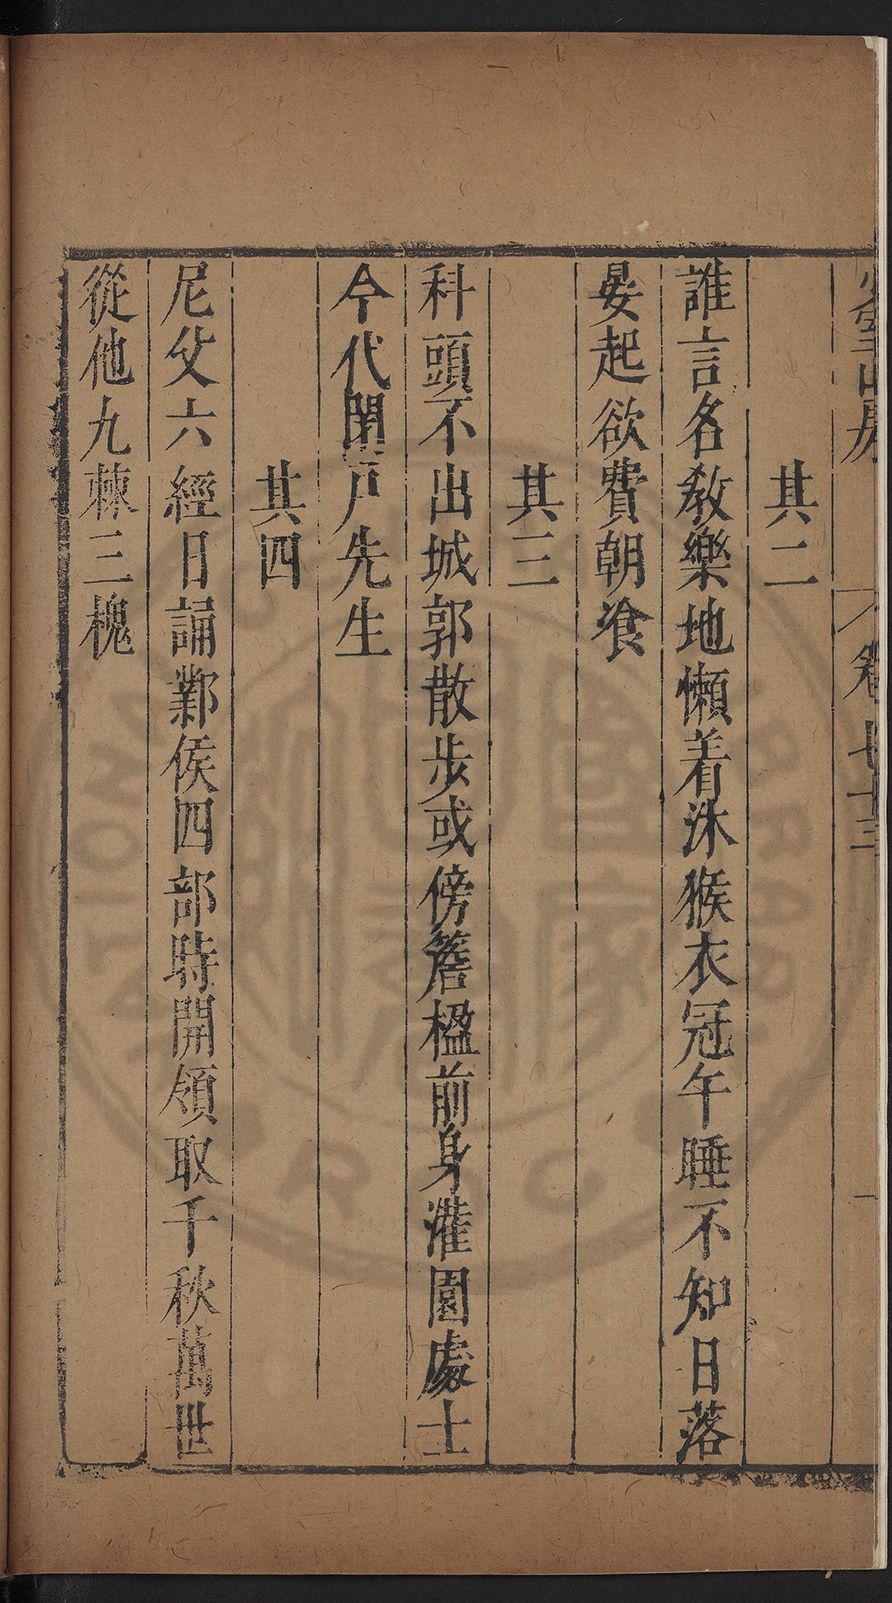 少室山房　卷七十三　一
其二
誰言名教樂地懶着沐猴衣冠午睡不知日落
晏起欲費朝飡
其三
科頭不出城郭散步或傍簷楹前身灌園處士
今代閉戸先生
其四
尼父六經日誦鄴侯四部時開領取千秋萬世
從他九棘三槐